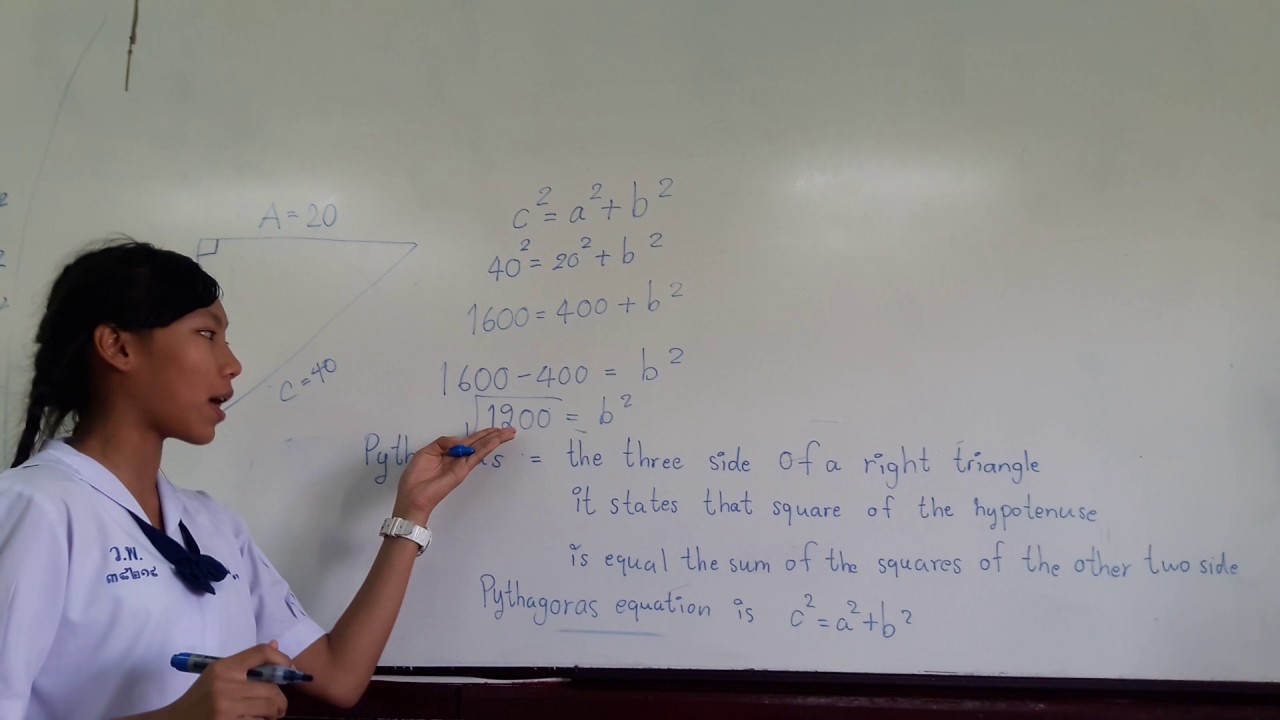 A = 20
C = 40
c² = a² + b²
40² = 20² + b²
1600 = 400 + b²
1600 - 400 = b²
√1200 = b²
= the three side of a right triangle
it states that square of the hypotenuse
is equal the sum of the squares of the other two side
Pythagoras equation is c² = a² + b²
ว.พ.
๓๔๒๑๔